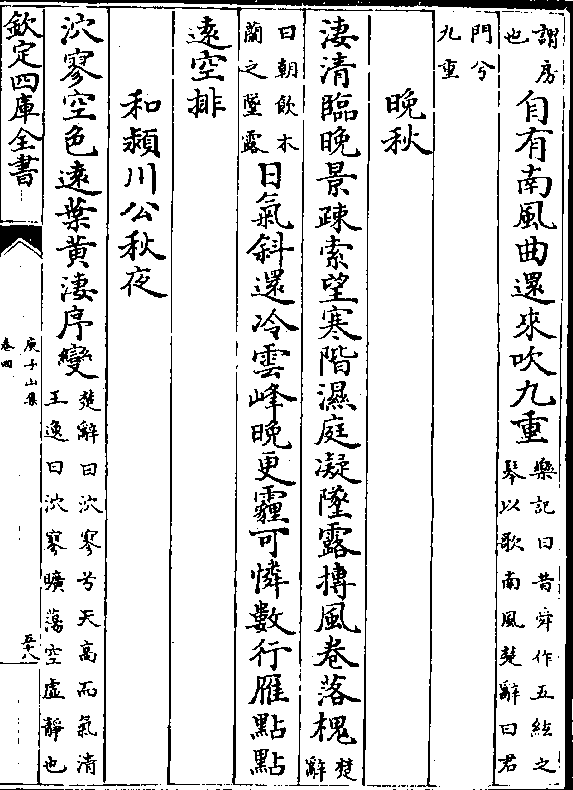 謂房
也
自有南風曲還來吹九重
樂記曰昔舜作五絃之
琴以歌南風楚辭曰君
門兮
九重
晚秋
淒清臨晚景疎索望寒階濕庭凝墜露摶風卷落槐
楚
辭
曰朝飲木
蘭之墜露
日氣斜還冷雲峰晚更霾可憐數行雁點點
遠空排
和潁川公秋夜
泬寥空色遠葉黃淒序變
楚辭曰泬寥兮天高而氣清
王逸曰泬寥曠蕩空虛靜也
欽定四庫全書
庾子山集
卷四
五十八